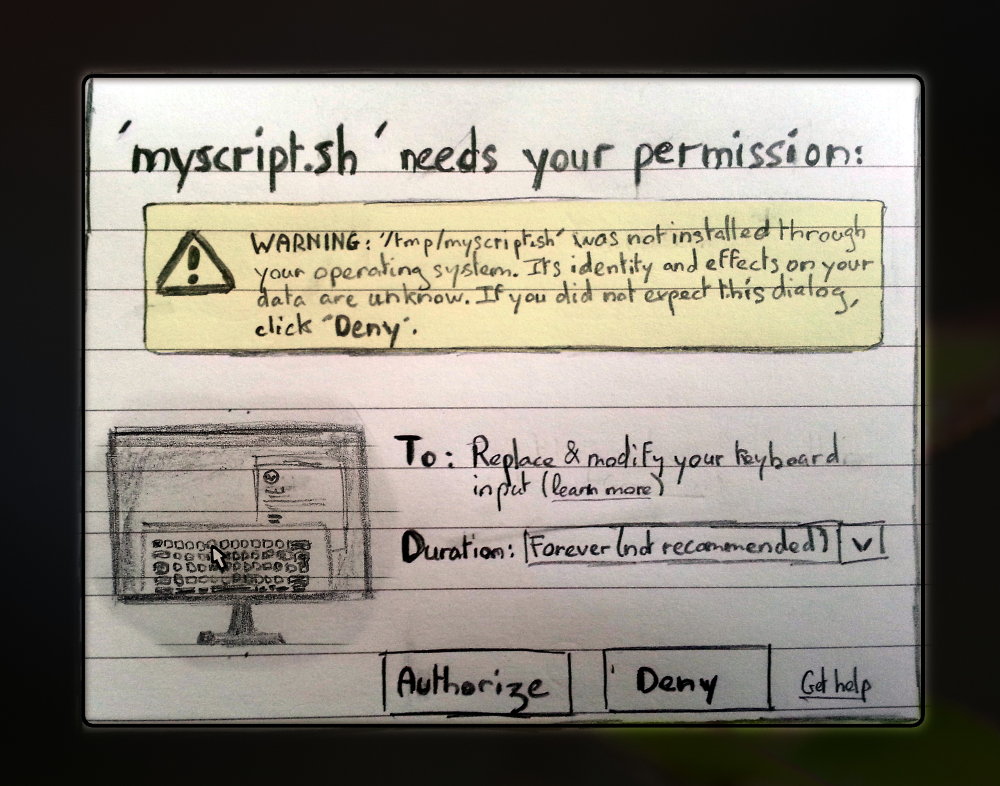 'myscript.sh' needs your permission:
WARNING: '/tmp/myscript.sh' was not installed through
your operating system. Its identity and effects on your
data are unknow. If you did not expect this dialog,
click "Deny".
To: Replace & modify your keyboard
input (learn more)
Duration: Forever (not recommended)
Authorize Deny Get help